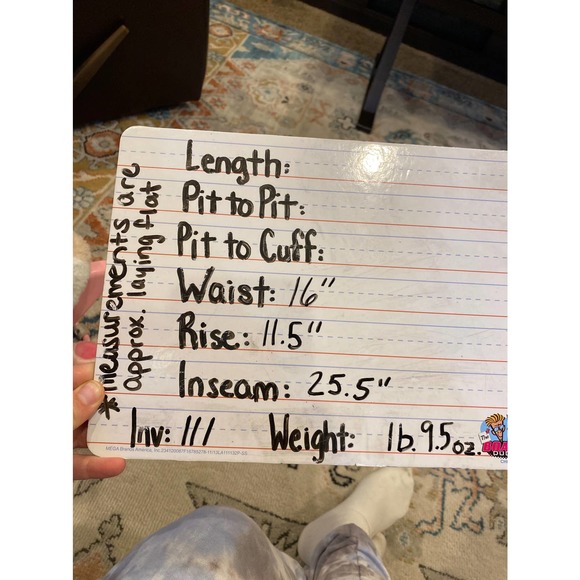 Length:
Pit to Pit:
Pit to Cuff:
Waist: 16"
Rise: 11.5"
Inseam: 25.5"
Inv: 111 Weight: 1b. 9.5oz.
*measurements are
approx. laying flat
The